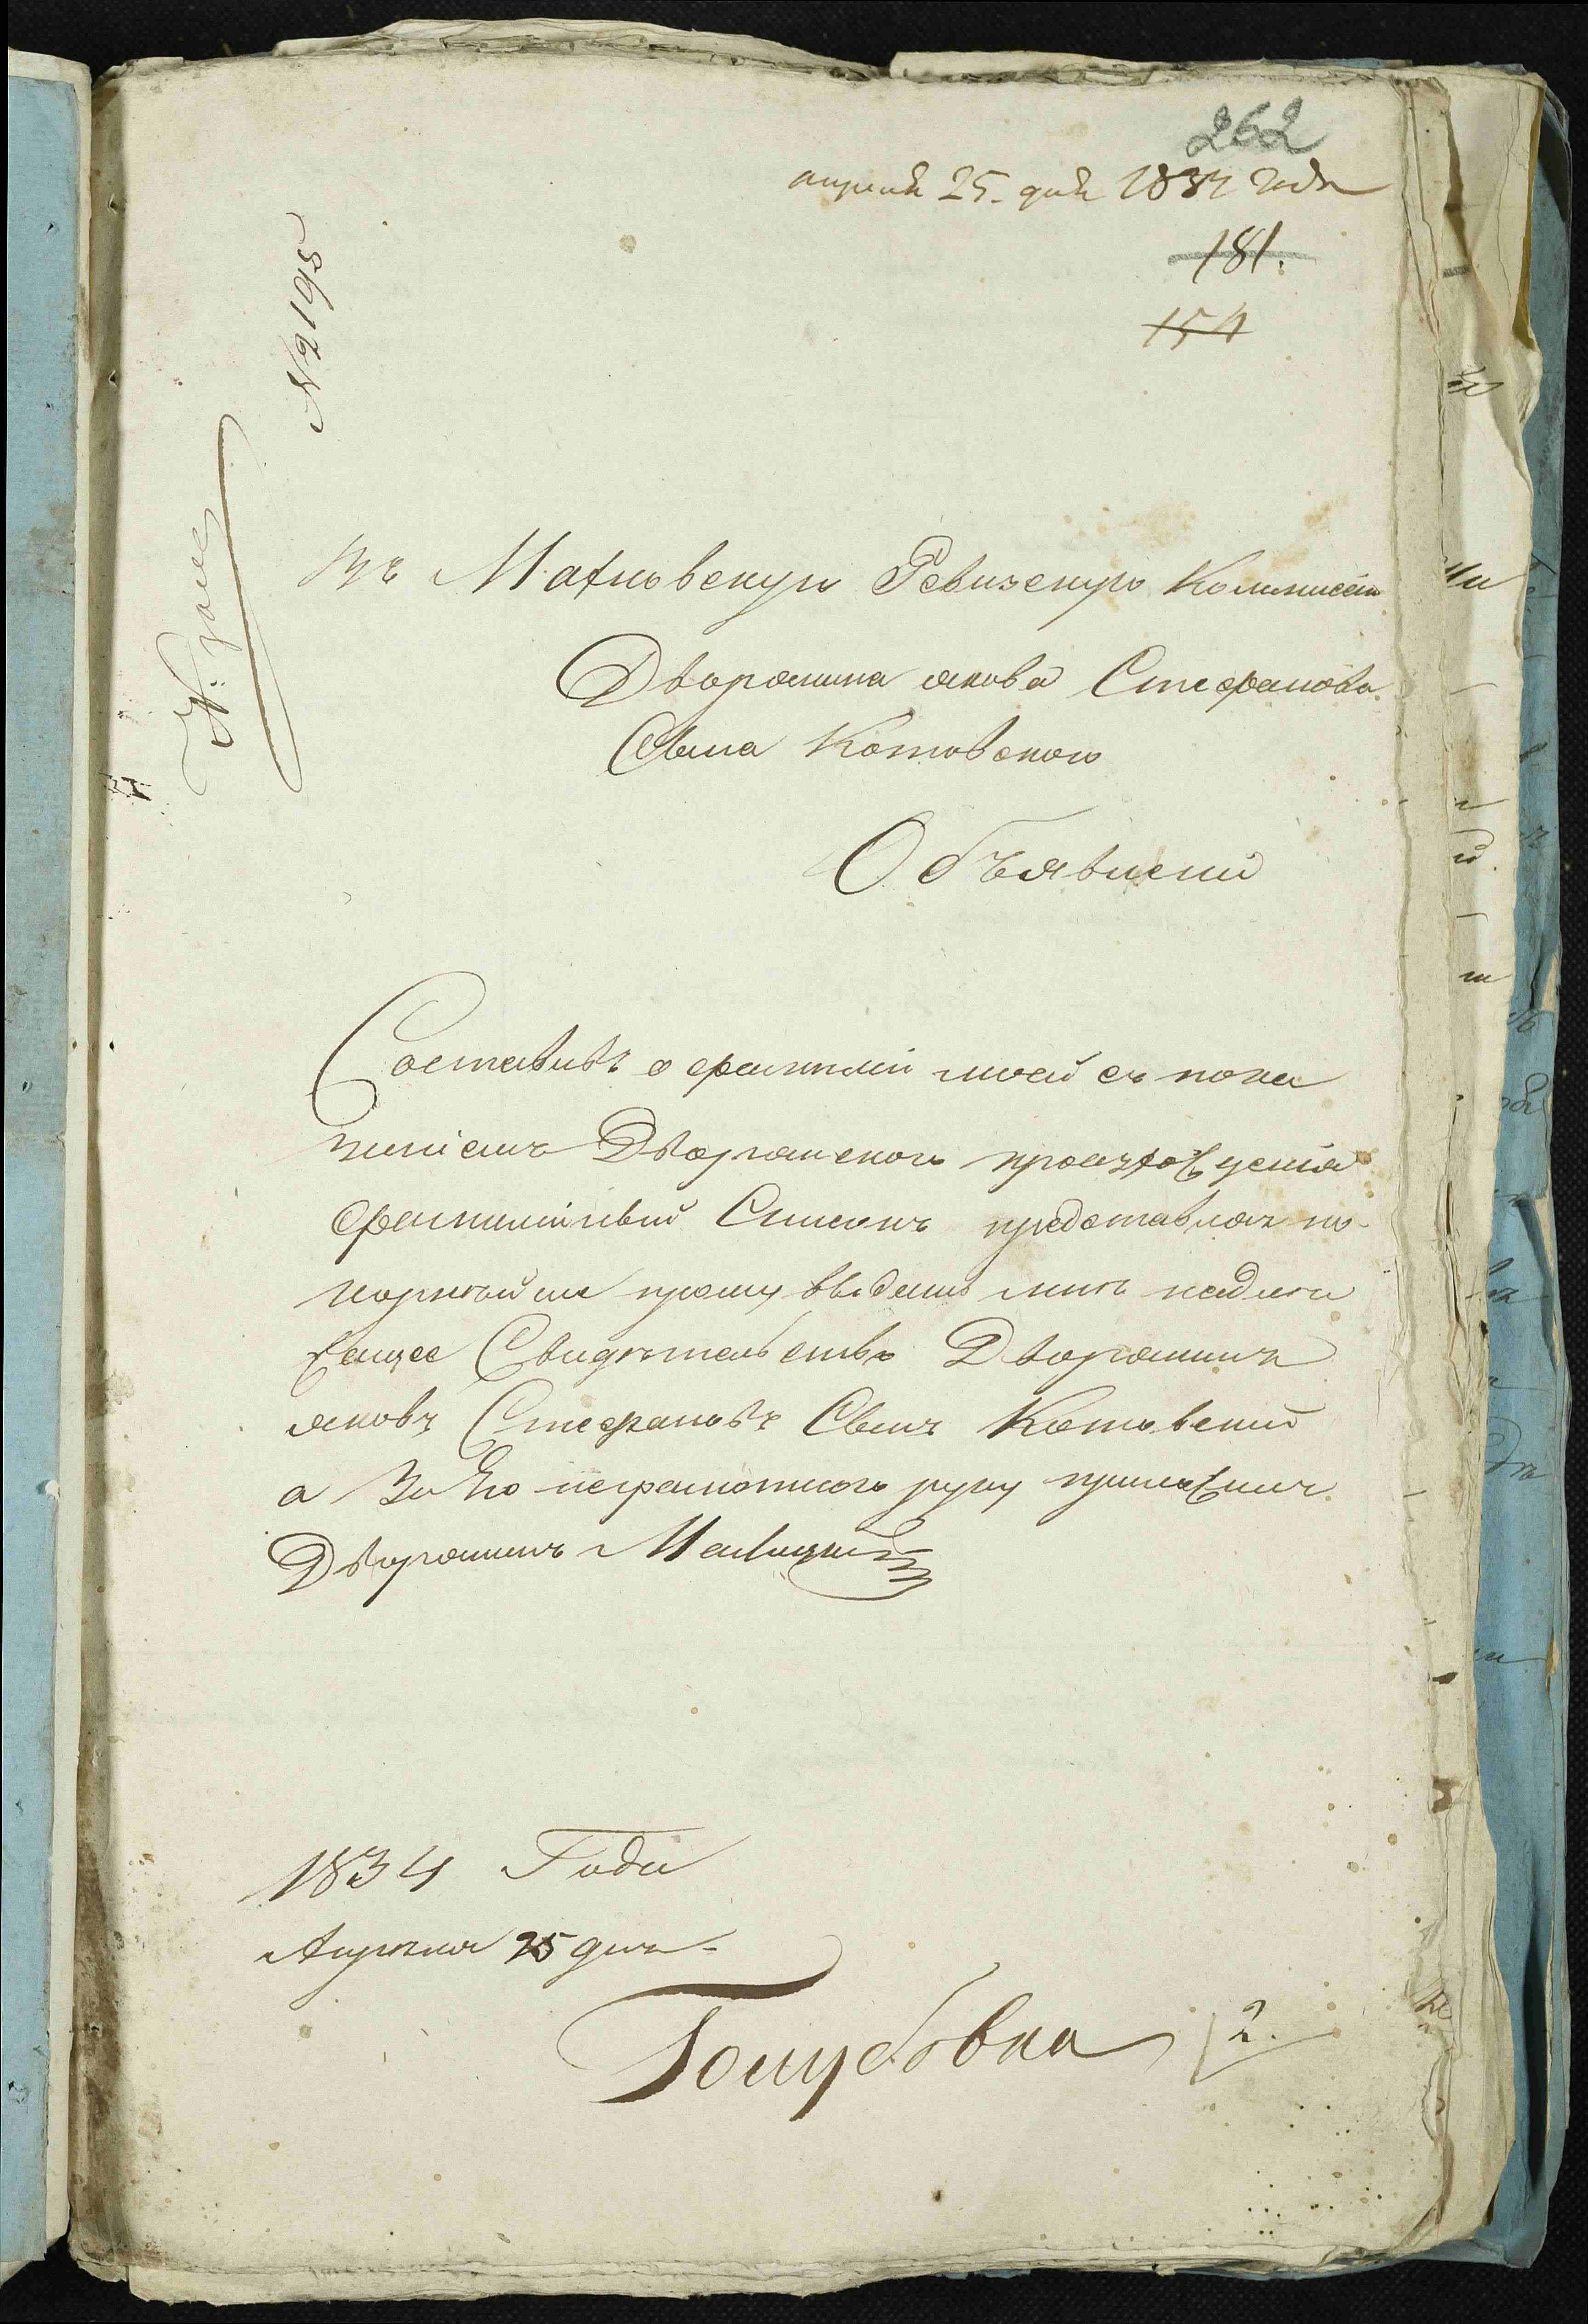 262
апреля 25. дня 1834 года
181.
154
№ 2195
Въ Махновскую Ревизскую Коммисію
Дворянина якова Стефанова
Сына Котовского
Объявленій
Составивъ о фамиліи моей съ пока
зиніемъ Дворянского произхожденія
Фамилійный Списокъ представляя по-
корнѣйше прошу выдать мнѣ надлѣ
жащее Свидѣтельство Дворянинъ
яковъ Стефановъ Сынъ Котовскій
а За Его неграмотного руку приложилъ
Дворянинъ
1834 Года
Апрѣля 25 дня
Голубовка 2.